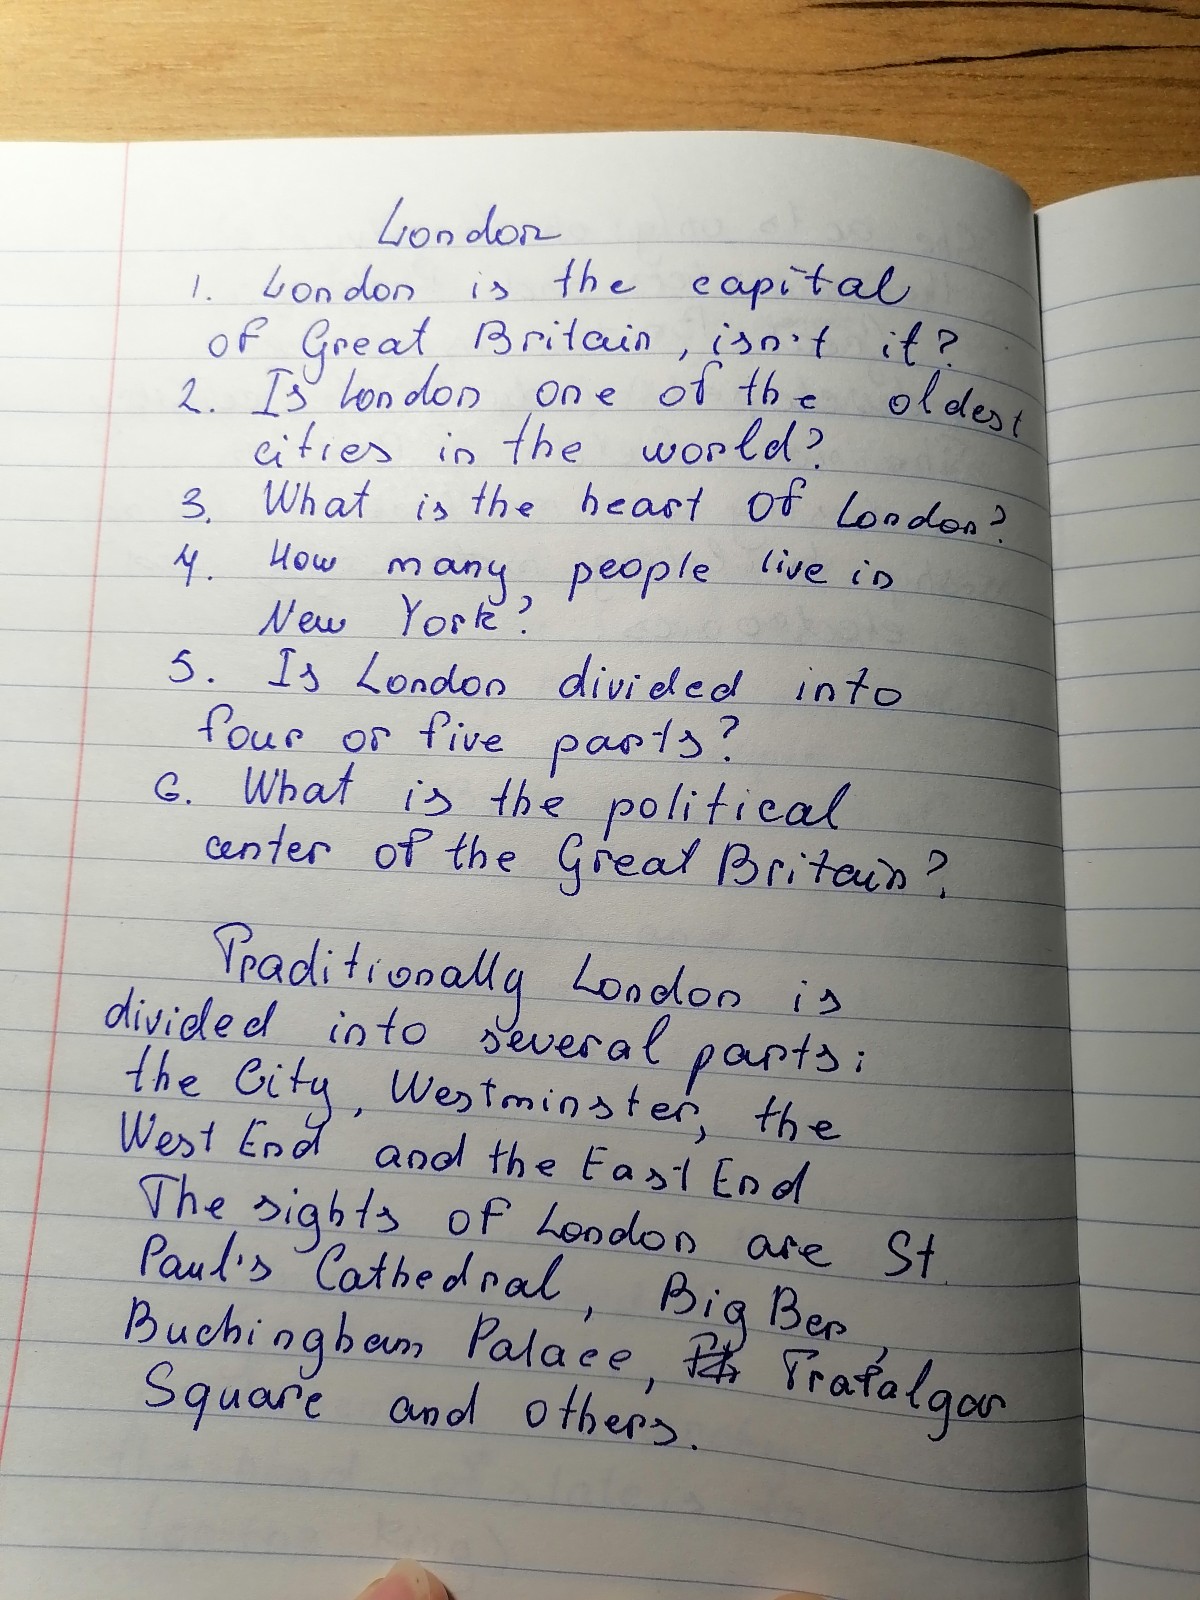 London
1. London is the capital
of Great Britain, isn't it?
2. Is London one of the oldest
cities in the world?
3. What is the heart of London?
4. How many people live in
New York?
5. Is London divided into
four or five parts?
6. What is the political
center of the Great Britain?
Traditionally London is
divided into several parts:
the City, Westminster, the
West End and the East End
The sights of London are St.
Paul's Cathedral, Big Ben,
Buchingham Palace, Trafalgar
Square and others.